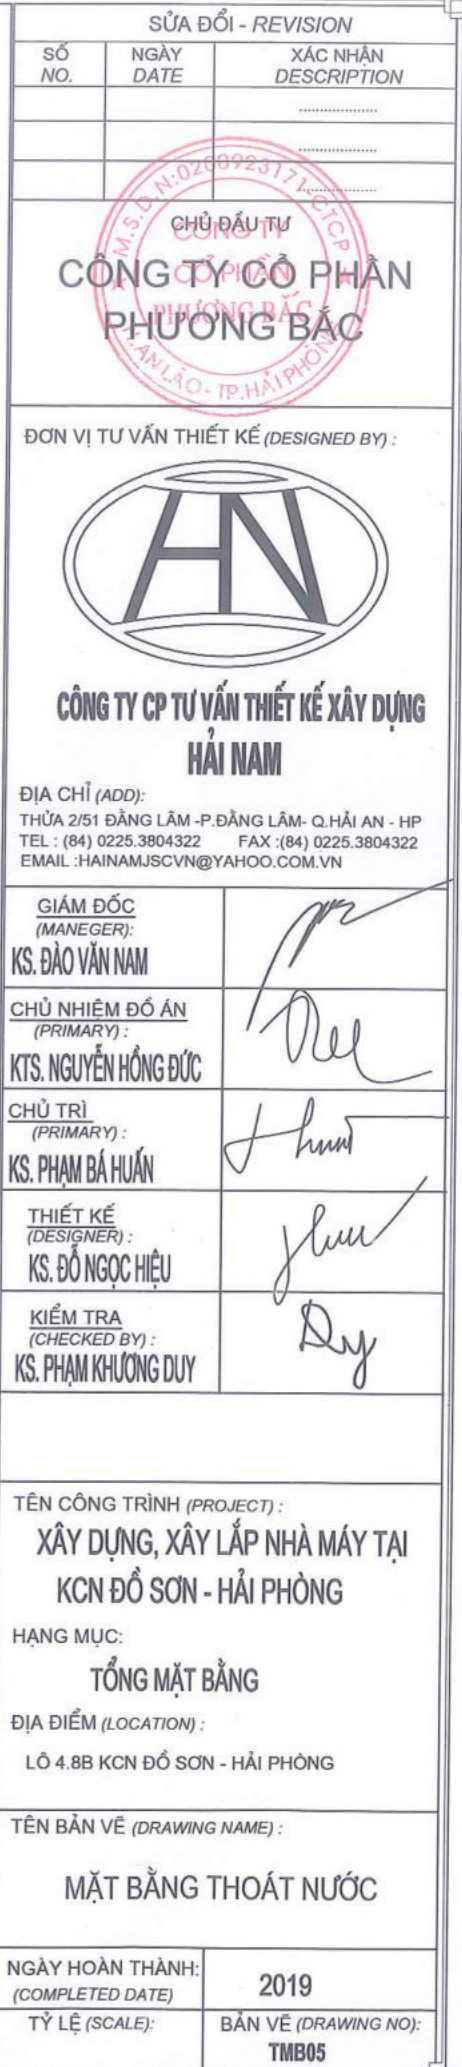 SỬA ĐỔI - REVISION
SỐ NGÀY XÁC NHẬN
NO. DATE DESCRIPTION
....................
....................
....................
M.S.D.N:0200923171-C.T.C.P
CÔNG TY
CỔ PHẦN
PHƯƠNG BẮC
H.AN LÃO - TP.HẢI PHÒNG
CHỦ ĐẦU TƯ
CÔNG TY CỔ PHẦN
PHƯƠNG BẮC
ĐƠN VỊ TƯ VẤN THIẾT KẾ (DESIGNED BY) :
HN
CÔNG TY CP TƯ VẤN THIẾT KẾ XÂY DỰNG
HẢI NAM
ĐỊA CHỈ (ADD):
THỬA 2/51 ĐẰNG LÂM -P.ĐẰNG LÂM- Q.HẢI AN - HP
TEL : (84) 0225.3804322 FAX :(84) 0225.3804322
EMAIL :HAINAMJSCVN@YAHOO.COM.VN
GIÁM ĐỐC
(MANEGER):
KS. ĐÀO VĂN NAM
CHỦ NHIỆM ĐỒ ÁN
(PRIMARY) :
KTS. NGUYỄN HỒNG ĐỨC
CHỦ TRÌ
(PRIMARY) :
KS. PHẠM BÁ HUẤN
THIẾT KẾ
(DESIGNER) :
KS. ĐỖ NGỌC HIỆU
KIỂM TRA
(CHECKED BY) :
KS. PHẠM KHƯƠNG DUY
TÊN CÔNG TRÌNH (PROJECT) :
XÂY DỰNG, XÂY LẮP NHÀ MÁY TẠI
KCN ĐỒ SƠN - HẢI PHÒNG
HẠNG MỤC:
TỔNG MẶT BẰNG
ĐỊA ĐIỂM (LOCATION) :
LÔ 4.8B KCN ĐỒ SƠN - HẢI PHÒNG
TÊN BẢN VẼ (DRAWING NAME) :
MẶT BẰNG THOÁT NƯỚC
NGÀY HOÀN THÀNH:
(COMPLETED DATE)
2019
TỶ LỆ (SCALE):
BẢN VẼ (DRAWING NO):
TMB05